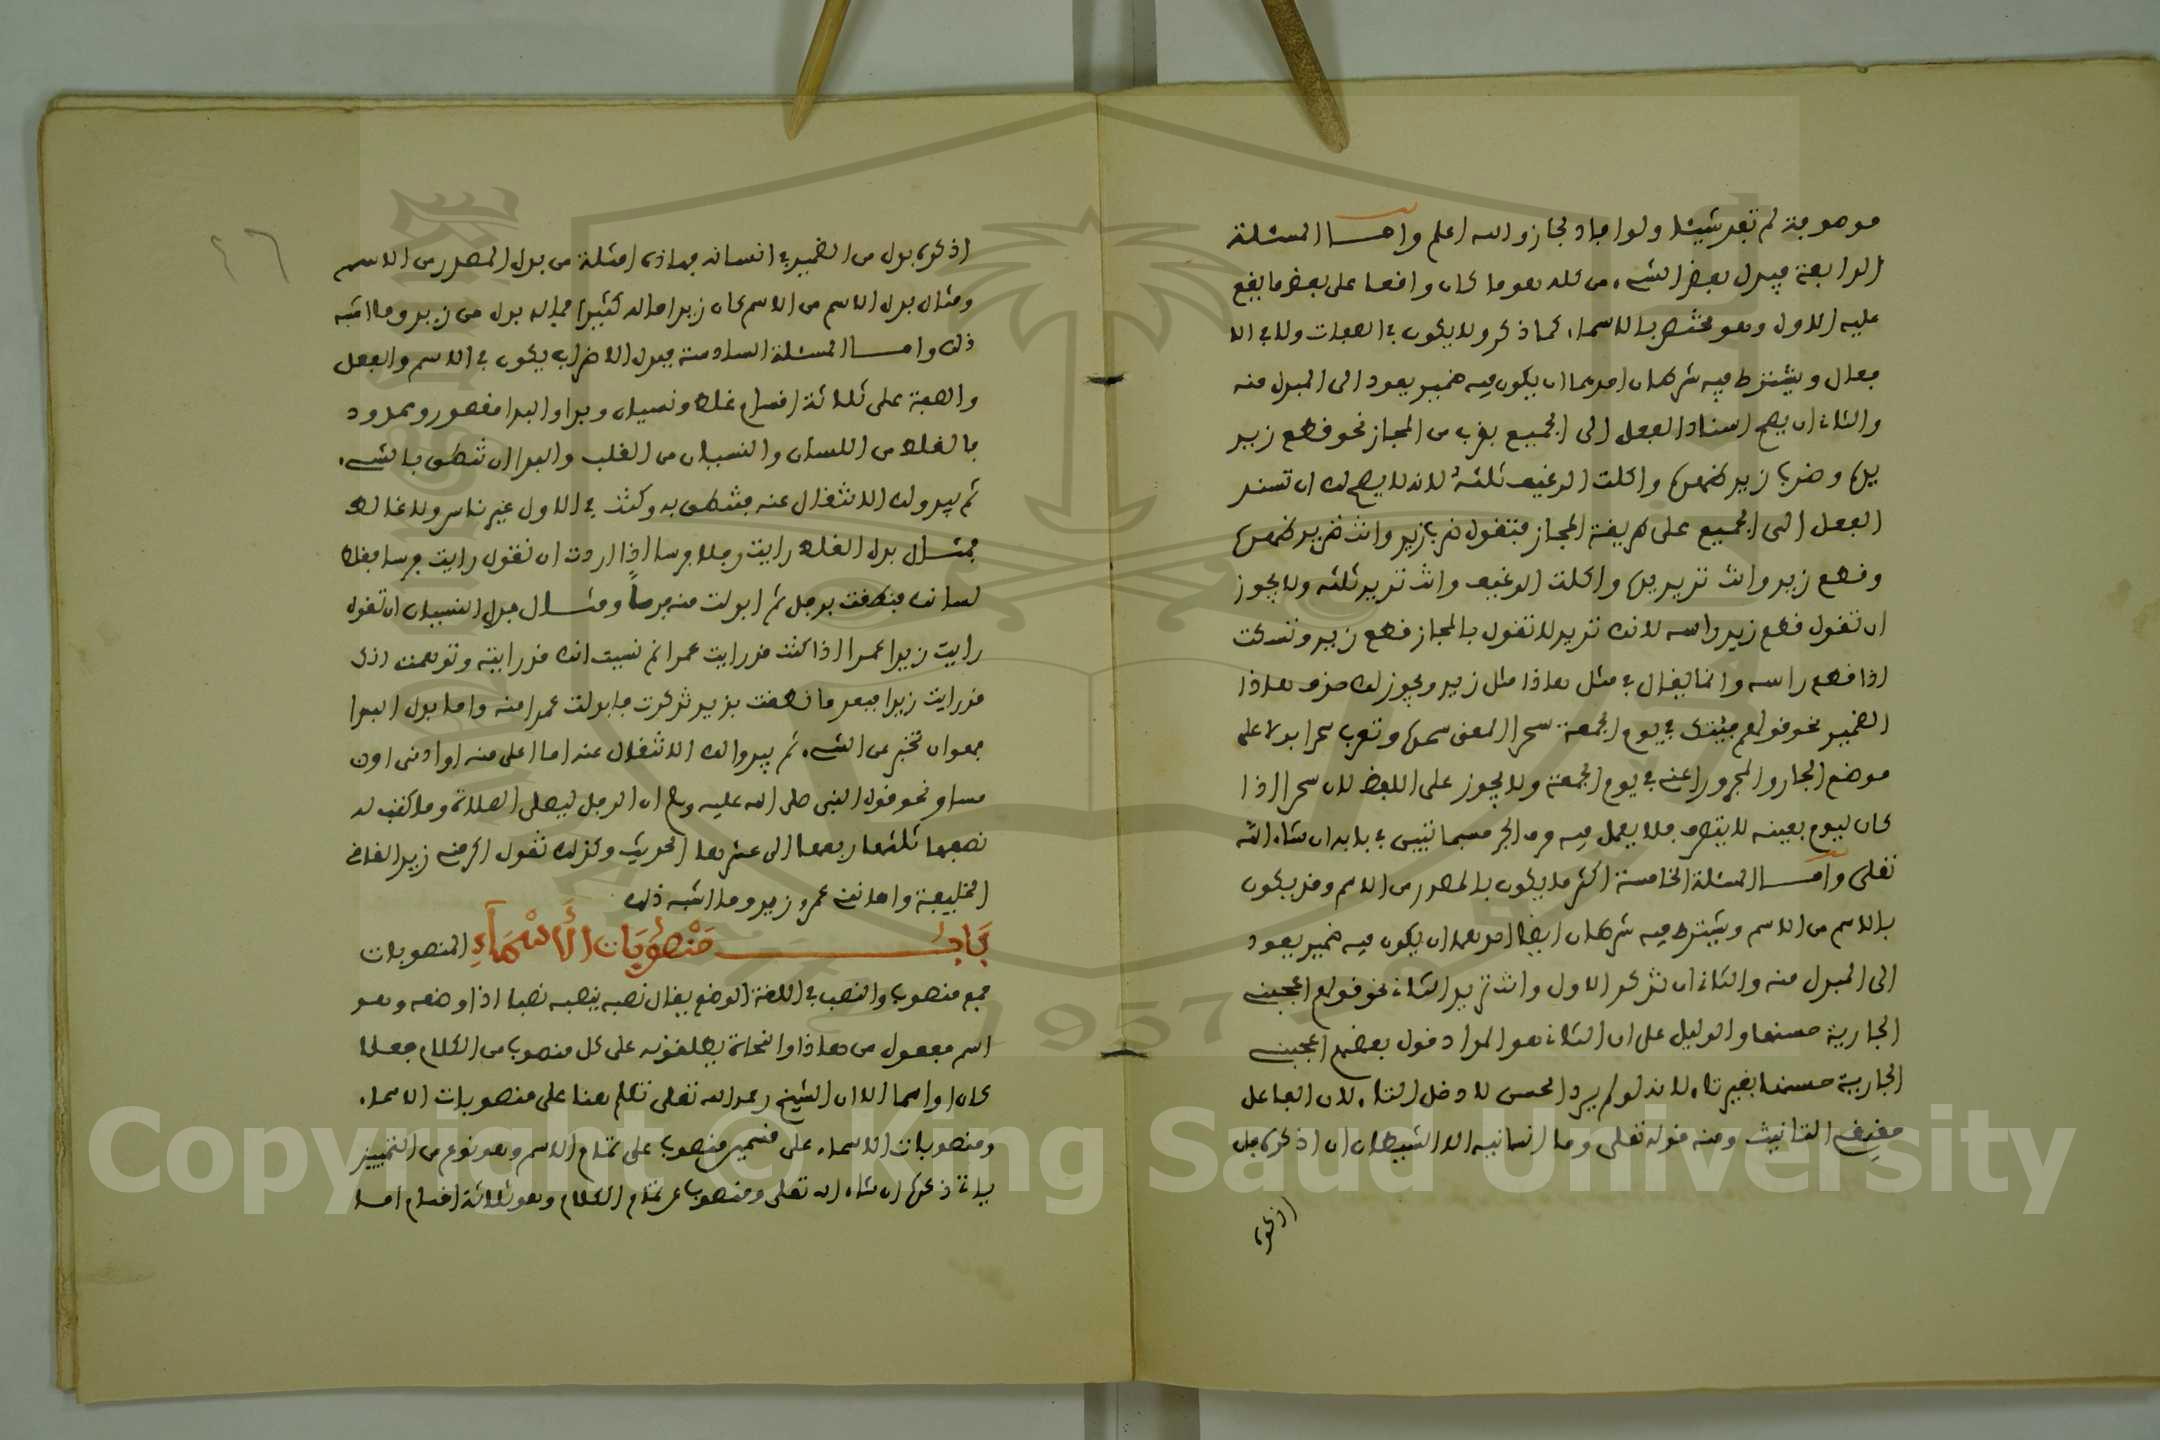 موصوفة لم تفد شيئا ولو افاد لجاز والله اعلم واما المسئلة
الرابعة فبدل بعض الشيء من كله هو ما كان واقعا على بعض ما يقع
عليه الاول وهو مختص بالاسماء كما ذكر ولا يكون في الصفات ولا في الا
فعال ويشترط فيه شرطان احدهما ان يكون فيه ضمير يعود الى المبدل منه
والثاني ان يصح اسناد الفعل الى الجميع بضرب من المجاز نحو قطع زيد
يده وضرب زيد ظهره واكلت الرغيف ثلثه لانه لا يصح لك ان تسند
الفعل الى الجميع على طريقة المجاز فتقول ضرب زيد وانت تريد ظهره
وقطع زيد وانت تريد يده واكلت الرغيف وانت تريد ثلثه ولا يجوز
ان تقول قطع زيد راسه لانك تريد لا تقول بالمجاز قطع زيد وتسكت
اذا قطع راسه وانما يقال في مثل هاذا مثل زيد ويجوز لك حذف هاذا
الضمير نحو قولهم جئتك في يوم الجمعة سحرا المعنى سحره وتعرب سحرا بدلا على
موضع الجار والمجرور اعني في يوم الجمعة ولا يجوز على اللفظ لان سحرا اذا
كان ليوم بعينه لا يتصرف فلا يعمل فيه حرف الجر حسبما تبين في بابه ان شاء الله
تعلى واما المسئلة الخامسة اكثر ما يكون بالمصدر من الاسم وقد يكون
بالاسم من الاسم ويشترط فيه شرطان ايضا احدهما ان يكون فيه ضمير يعود
الى المبدل منه والثاني ان تذكر الاول وانت تريد الثاني نحو قولهم اعجبني
الجارية حسنها والدليل على ان الثاني هو المراد قول بعضهم اعجبني
الجارية حسنها بغير تاء لانه لو لم يرد الحسن لادخل التاء لان الفاعل
حقيقي التانيث ومنه قوله تعلى وما انسانيه الا الشيطان ان اذكره فان
اذكره
٢٦
اذكره بدل من الضمير في انسانيه فهاذه امثلة من بدل المصدر من الاسم
ومثال بدل الاسم من الاسم كان زيد ماله كثيرا فماله بدل من زيد وما اشبه
ذلك واما المسئلة السادسة فبدل الاضراب يكون في الاسم والفعل
والصفة على ثلاثة اقسام غلط ونسيان وبدا والبدا مقصور وممدود
فالغلط من اللسان والنسيان من القلب والبدا ان تنطق بالشيء
ثم يبدو لك الانتقال عنه فتنطق به وكنت في الاول غير ناس ولا غالط
فمثال بدل الغلط رايت رجلا فرسا اذا اردت ان تقول رايت فرسا فغلط
لسانك فنطقت برجل ثم ابدلت منه فرسا ومثال بدل النسيان ان تقول
رايت زيدا عمرا اذا كنت قد رايت عمرا ثم نسيت انك قد رايته وتوهمت انك
قد رايت زيدا فبعد ما نطقت بزيد تذكرت فابدلت عمرا منه واما بدل البدا
فهو ان تخبر عن الشيء ثم يبدو لك الانتقال عنه اما اعلى منه او ادنى او
مساو نحو قول النبي صلى الله عليه وسلم ان الرجل ليصلي الصلاة وما كتب له
نصفها ثلثها ربعها الى عشرها الحديث وكذلك تقول اكرمني زيد القاضي
الخليفة واهانني عمرو زيد وما اشبه ذلك
بَابُ مَنْصُوبَات الْأَسْمَآءِ المنصوبات
جمع منصوب والنصب في اللغة الوضع يقال نصبه ينصبه نصبا اذا وضعه وهو
اسم مفعول من هاذا والنحاة يطلقونه على كل منصوب من الكلام فعلا
كان او اسما الا ان الشيخ رحمه الله تعلى تكلم هنا على منصوبات الاسماء
ومنصوبات الاسماء على قسمين منصوب على تمام الاسم وهو نوع من التمييز
ياتي ذكره ان شاء الله تعلى ومنصوب عن تمام الكلام وهو ثلاثة اقسام اما
Copyright © King Saud University
1957